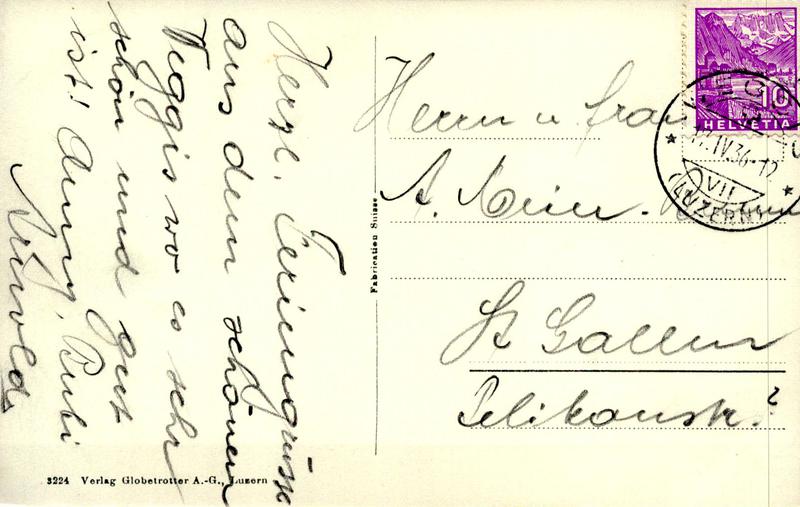 Herzl. Feriengrüsse
aus dem schönen
Weggis wo es sehr
schön und gut
ist! Anny, Bubi
Arnold
Fabrication Suisse
3224 Verlag Globetrotter A.-G., Luzern
Herrn u. Frau
A. Meier-
St Gallen
Pelikanstr. 2
10
HELVETIA
IV.36-12
VII
(LUZERN)